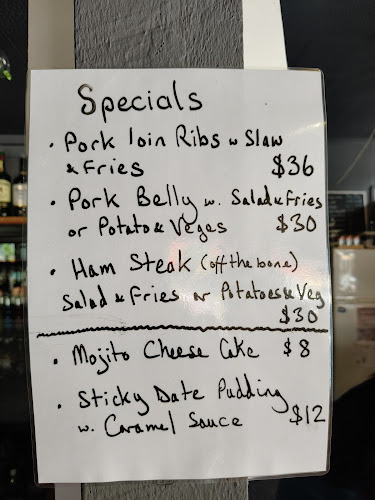 Specials
• Pork loin Ribs w Slaw
& Fries $36
• Pork Belly w. Salad & Fries
or Potato & Veges $30
• Ham Steak (off the bone)
Salad & Fries or Potatoes & Veg
$30
• Mojito Cheese Cake $8
• Sticky Date Pudding
w. Caramel Sauce $12